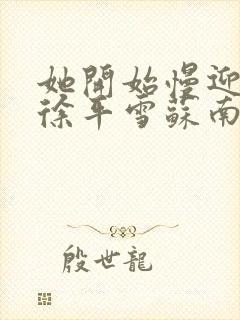 她開始慢迎
徐平雪蘇南
殷世龍